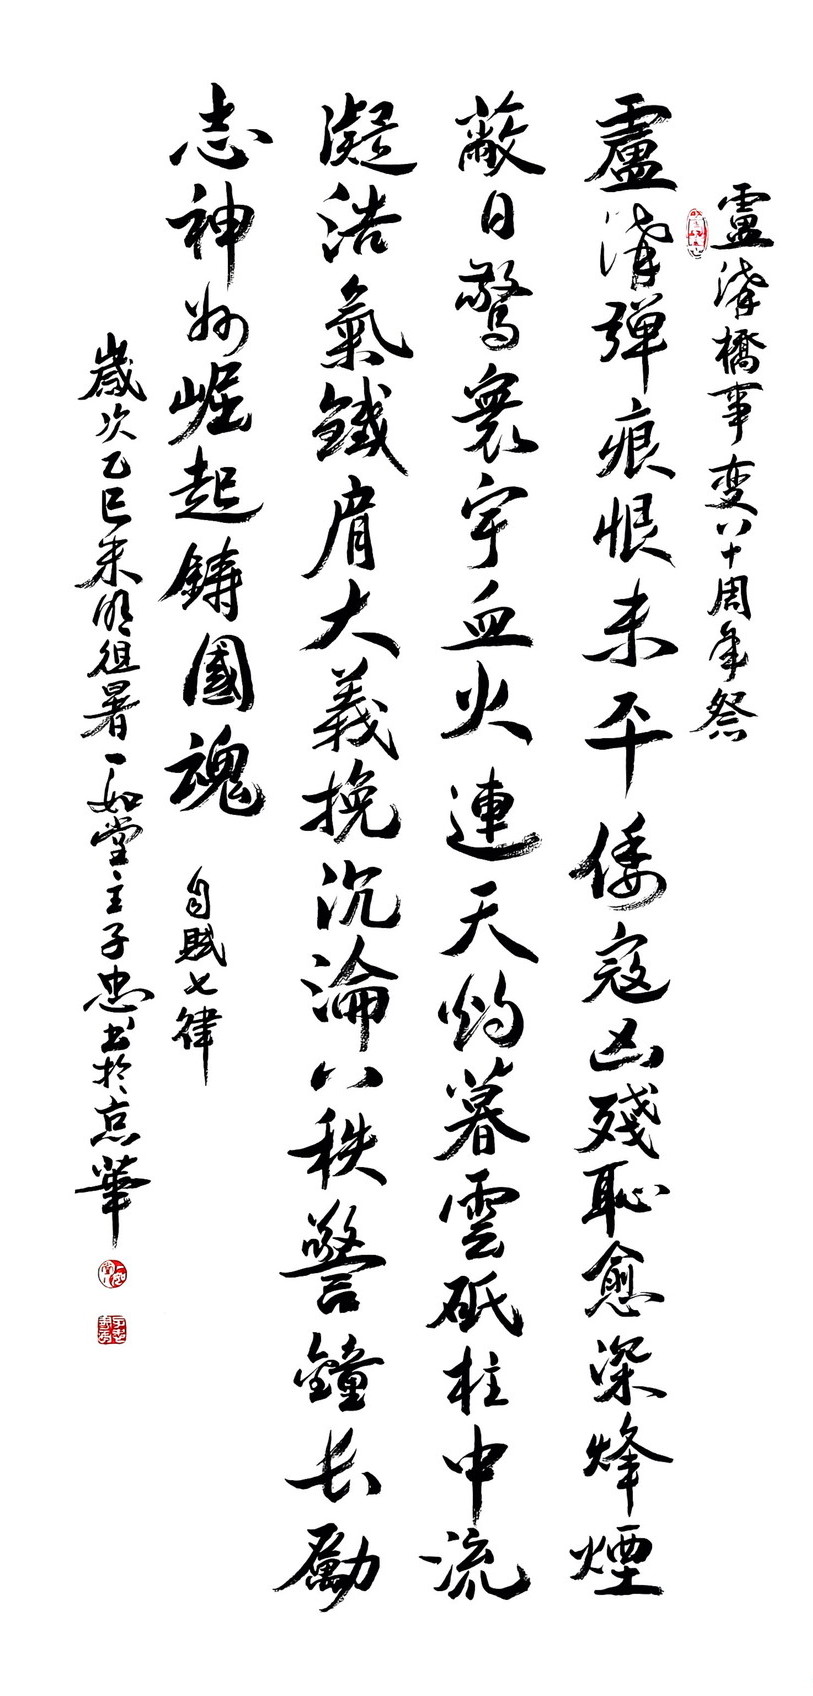 盧溝橋事变八十周年祭
盧溝彈痕恨未平倭寇凶殘恥愈深烽煙
蔽日驚寰宇血火連天灼暮雲砥柱中流
凝浩氣鐵肩大義挽沉淪八秩警鐘长勵
志神州崛起鑄國魂
自賦七律
歲次乙巳末明徂暑一如堂主子忠书於京華